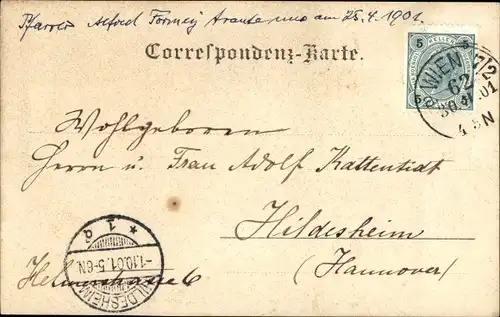 Pfarrer Alfred Formey traute uns am 25.4.1901.
Correspondenz-Karte.
5 HELLER 5
WIEN 7/2
62
30.
.01
4 N
Wohlgeboren
Herrn u. Frau Adolf Kattentidt
Hildesheim
(Hannover)
* 1 g
-1.10.01.5-6N
HILDESHEIM
6